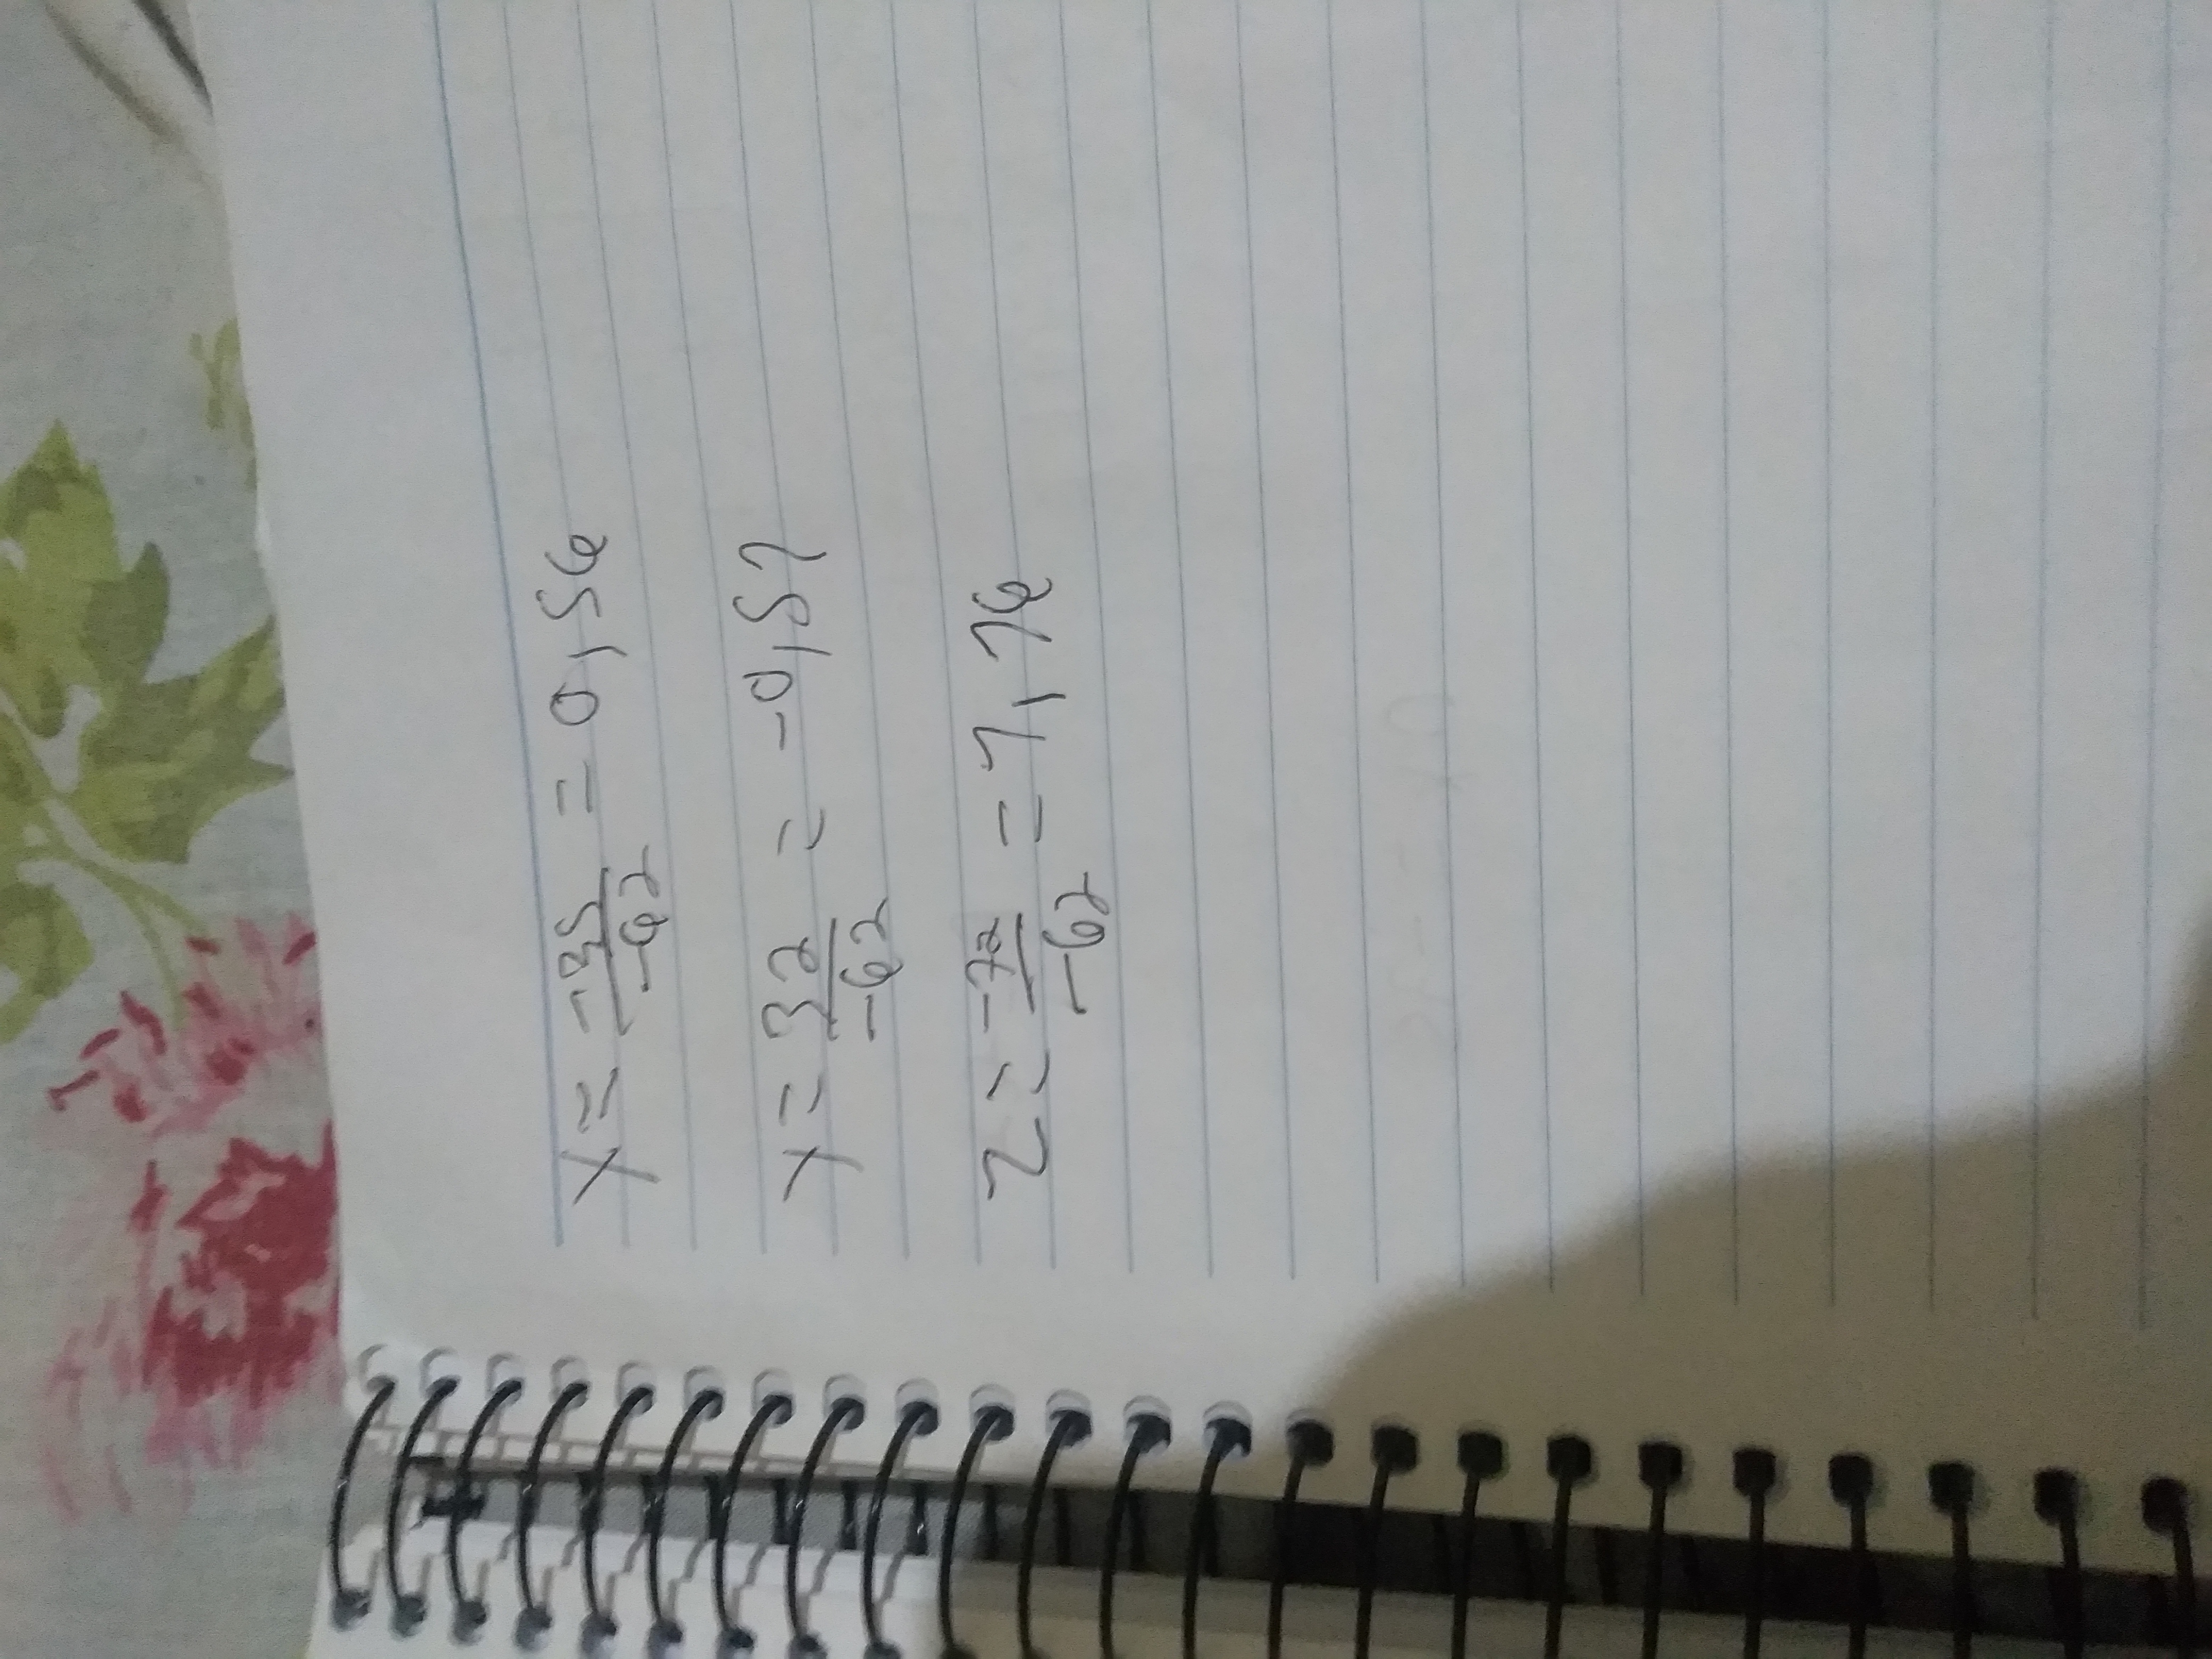 x = -35/-62 = 0,56
y = 32/-62 = -0,51
z = -72/-62 = 1,16